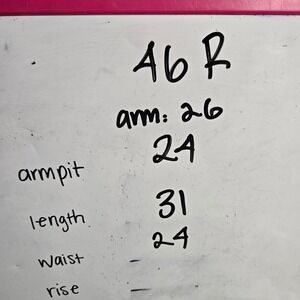 46 R
arm: 26
armpit 24
length 31
waist 24
rise —